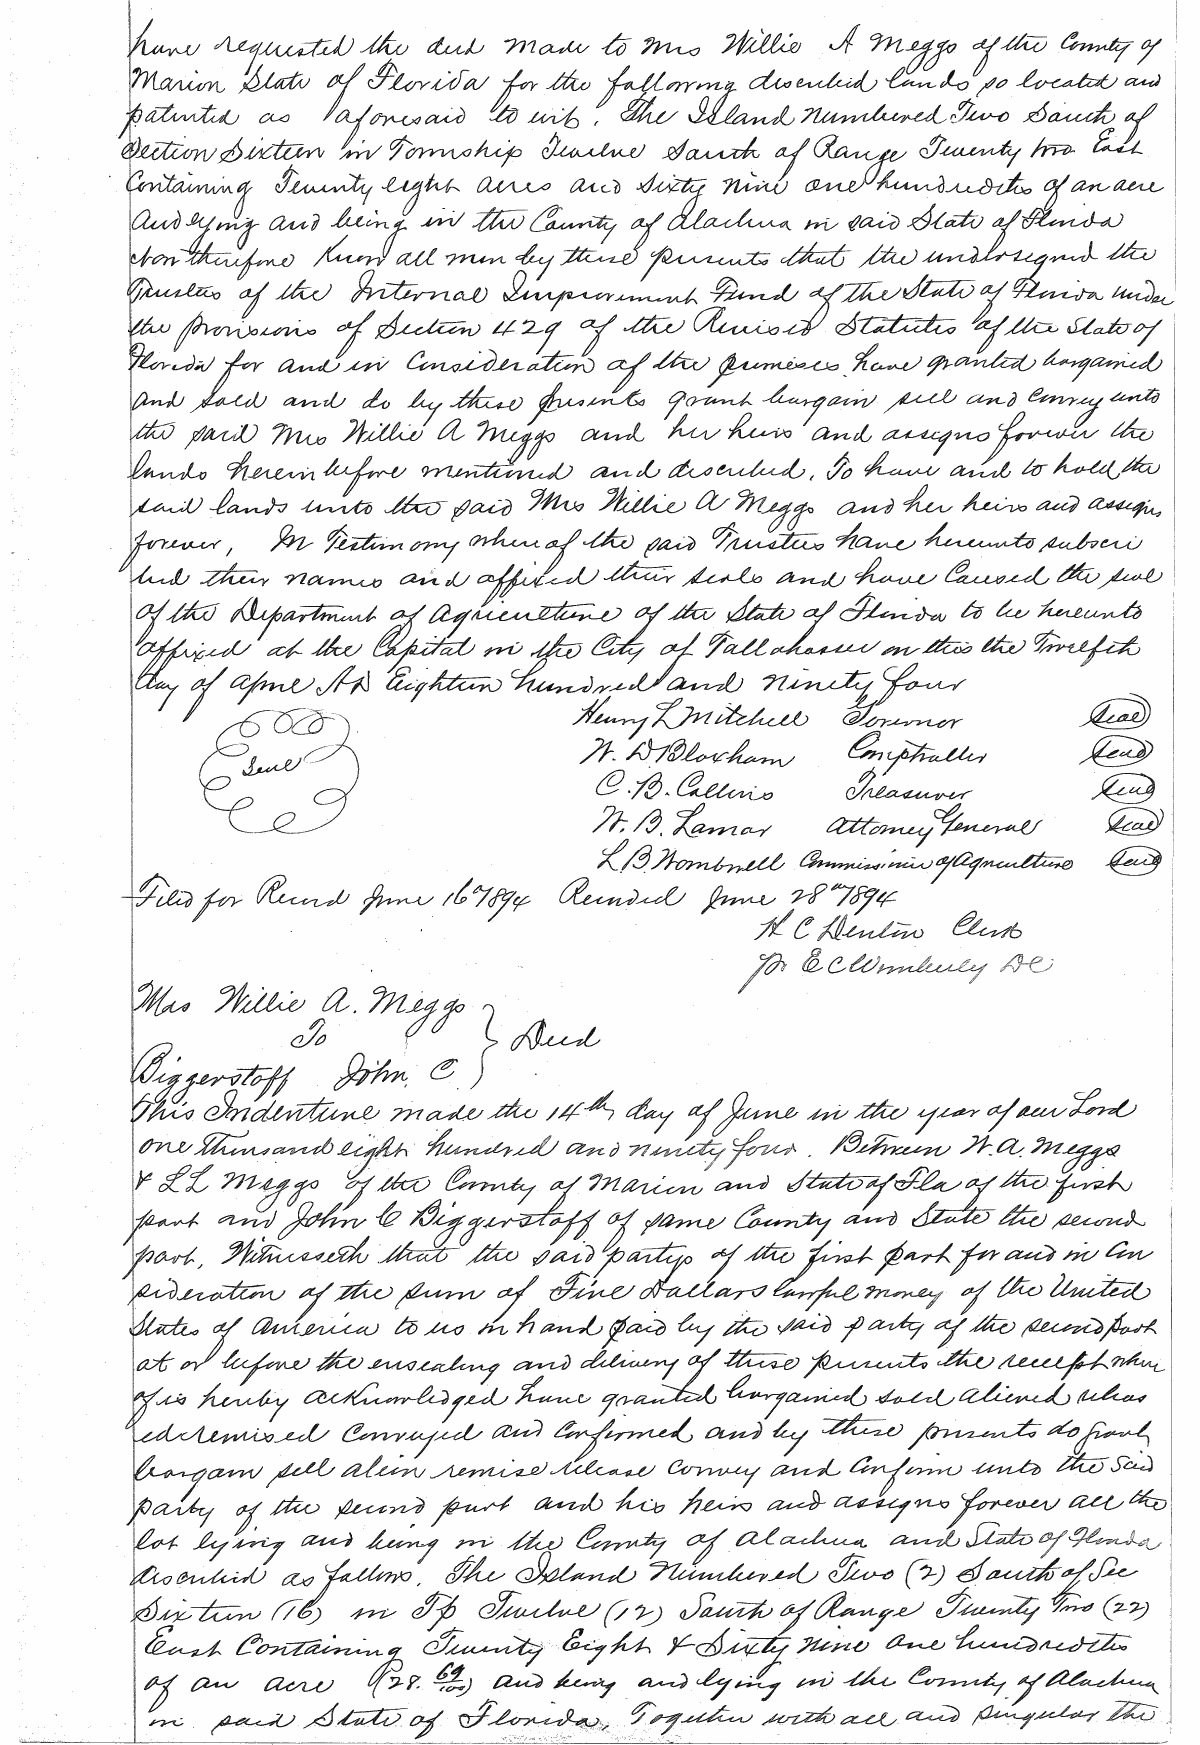 have requested the deed made to Mrs Willie A Meggs of the County of
Marion State of Florida for the following described lands so located and
patented as aforesaid to wit. The Island Numbered Two South of
Section Sixteen in Township Twelve South of Range Twenty two East
Containing Twenty eight acres and Sixty Nine one hundredths of an acre
and lying and being in the County of Alachua in said State of Florida
Now therefore Know all men by these presents that the undersigned the
Trustees of the Internal Improvement Fund of the State of Florida under
the provisions of Section 429 of the Revised Statutes of the State of
Florida for and in Consideration of the premises have granted bargained
and sold and do by these presents grant bargain sell and convey unto
the said Mrs Willie A Meggs and her heirs and assigns forever the
lands herein before mentioned and described. To have and to hold the
said lands unto the said Mrs Willie A Meggs and her heirs and assigns
forever, In Testimony where of the said Trustees have hereunto subscri
bed their names and affixed their seals and have Caused the seal
of the Department of Agriculture of the State of Florida to be hereunto
affixed at the Capital in the City of Tallahassee on this the Twelfth
day of April AD Eighteen hundred and ninety four
Henry L Mitchell Governor Seal
Seal W. D Bloxham Comptroller Seal
C. B. Collins Treasurer Seal
W. B. Lamar Attorney General Seal
L B. Wombwell Commissioner of Agriculture Seal
Filed for Record June 16th 1894 Recorded June 28th 1894
H C Denton Clerk
pr E C Wimberly DC
Mrs Willie A. Meggs
To } Deed
Biggerstoff John. C
This Indenture made the 14th day of June in the year of our Lord
one thousand eight hundred and ninety four. Between W. A. Meggs
& L L Meggs of the County of Marion and State of Fla of the first
part and John C Biggerstoff of same County and State the second
part, Witnesseth that the said partys of the first part for and in Con
sideration of the sum of Five Dollars lawful money of the United
States of America to us in hand paid by the said party of the second part
at or before the ensealing and delivery of these presents the receipt where
of is hereby acknowledged have granted bargained sold aliened releas
ed remised Conveyed and Confirmed and by these presents do grant
bargain sell alien remise release convey and Confirm unto the said
party of the second part and his heirs and assigns forever all the
lot lying and being in the County of Alachua and State of Florida
described as follows. The Island Numbered Two (2) South of Sec
Sixteen (16) in Tp Twelve (12) South of Range Twenty Two (22)
East Containing Twenty Eight & Sixty Nine one hundredths
of an acre (28. 69/100) and being and lying in the County of Alachua
in said State of Florida, Together with all and singular the